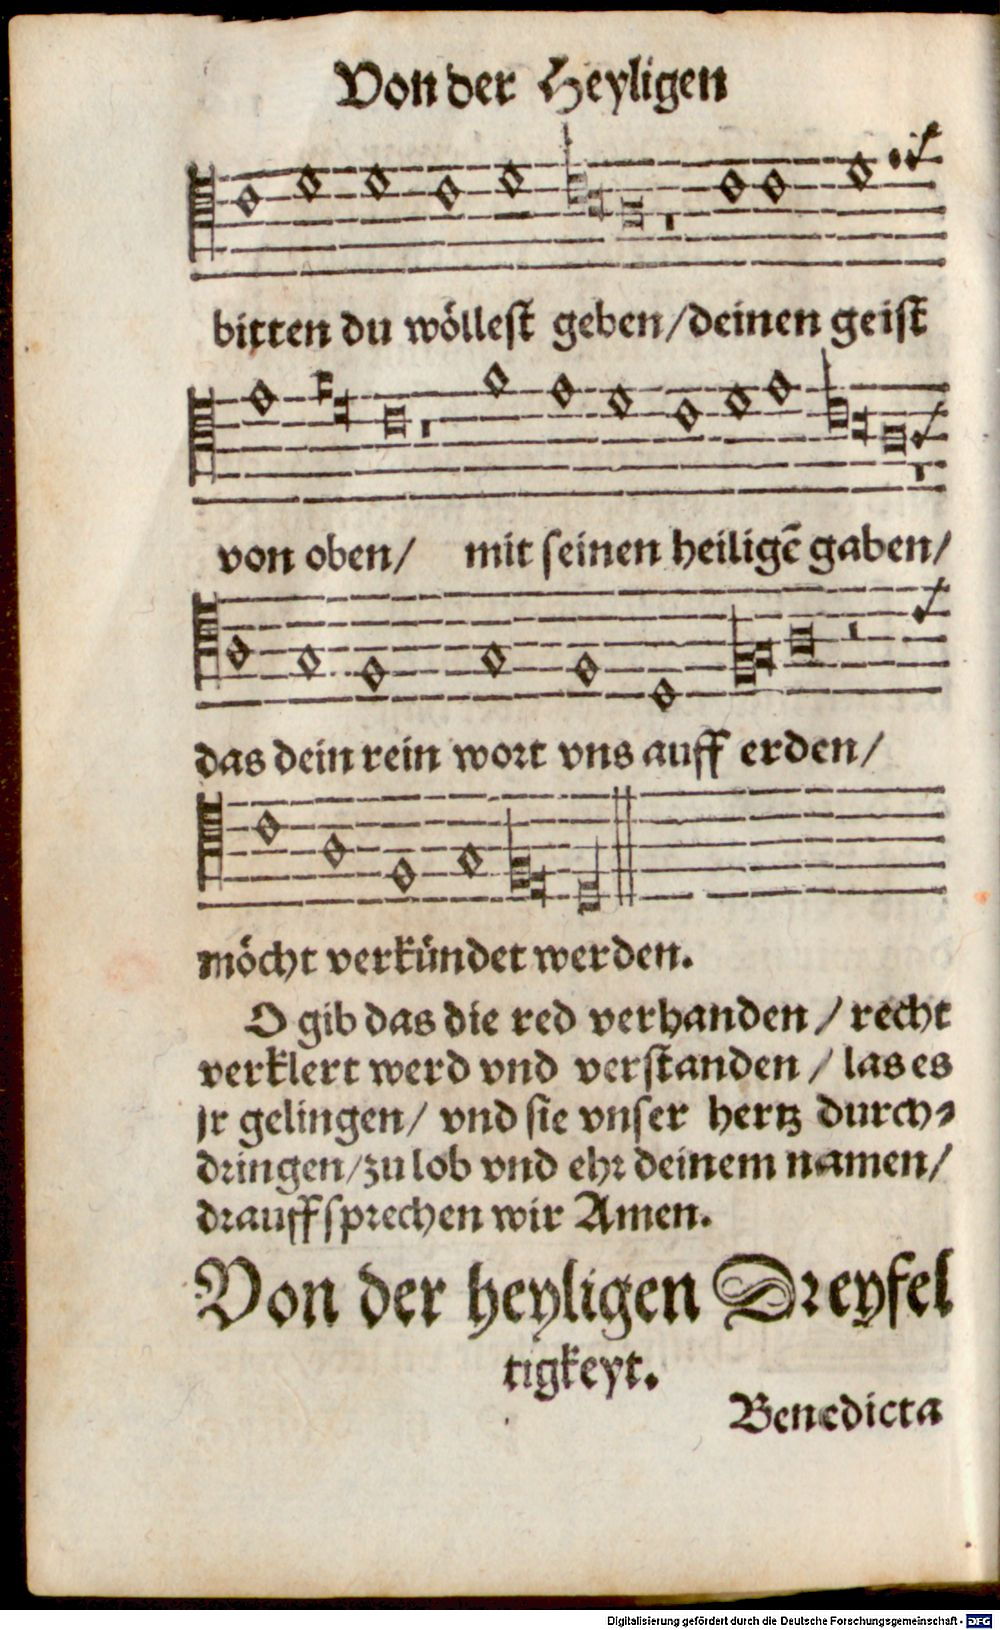 Von der Heyligen
bitten du wöllest geben/deinen geist
von oben/ mit seinen heiligē gaben/
das dein rein wort vns auff erden/
möcht verkündet werden.
O gib das die red verhanden / recht
verklert werd vnd verstanden / las es
jr gelingen/ vnd sie vnser hertz durch⸗
dringen/zu lob vnd ehr deinem namen/
drauff sprechen wir Amen.
Von der heyligen Dreyfel
tigkeyt.
Benedicta
Digitalisierung gefördert durch die Deutsche Forschungsgemeinschaft - DFG